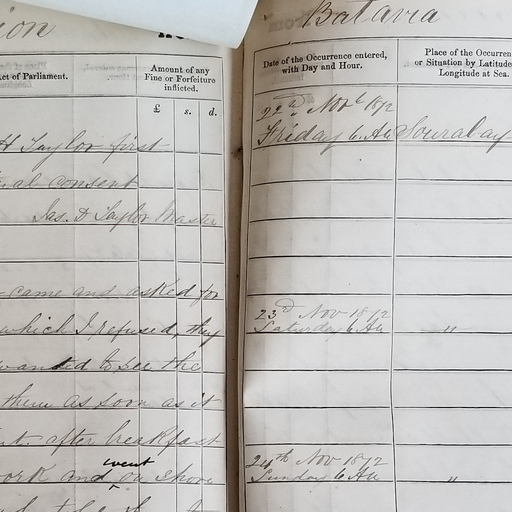 ion
ct of Parliament.
Amount of any
Fine or Forfeiture
inflicted.
£ s. d.
H Taylor first
al consent
Jas. D Taylor Master
came and asked for
which I refused, they
wanted to see the
them as soon as it
after breakfast
went
ork and on shore
Batavia
Date of the Occurrence entered,
with Day and Hour.
Place of the Occurren
or Situation by Latitude
Longitude at Sea.
22nd Novr 1872
Friday 6 AM Sourabay
23d Nov 1872
Saturday 6 AM "
24th Nov 1872
Sunday 6 AM "